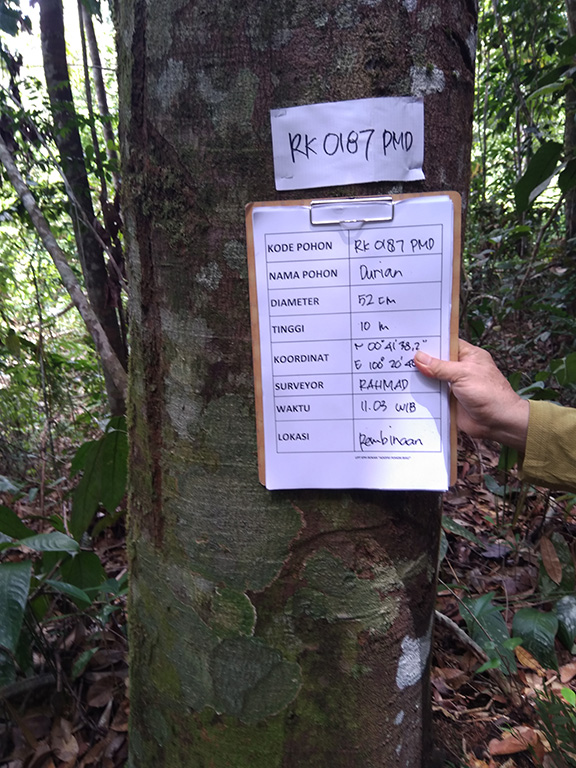 RK 0187 PMD
KODE POHON RK 0187 PMD
NAMA POHON Durian
DIAMETER 52 cm
TINGGI 10 m
KOORDINAT N 00° 41' 38,2"
E 100° 20'
SURVEYOR RAHMAD
WAKTU 11.03 WIB
LOKASI Pembinaan